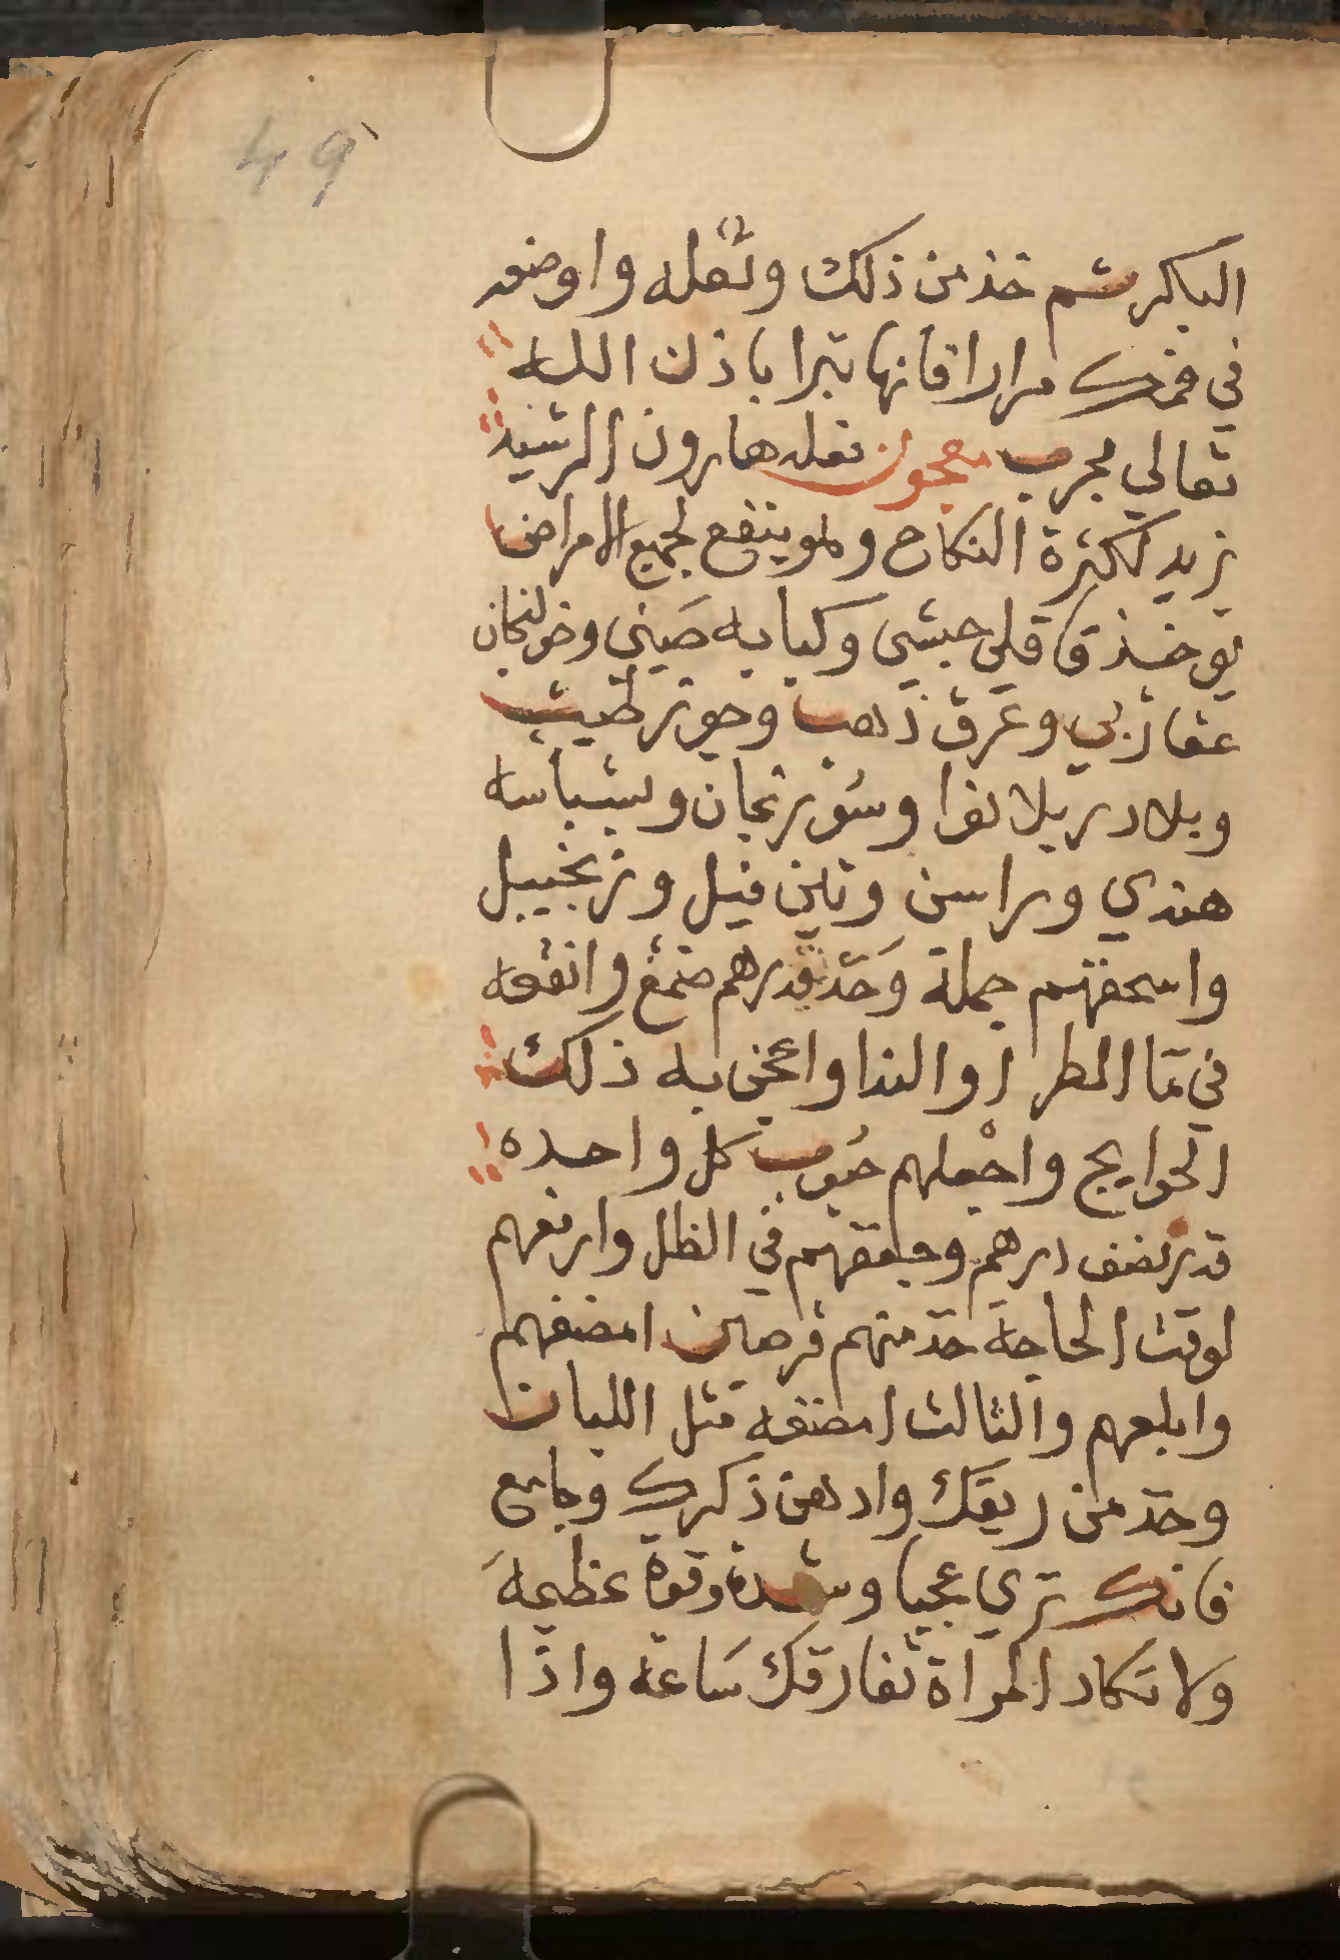 49
البكر ثم خذ من ذلك وتفله واوضعه
في فمك مرارا فانها تبرا باذن الله
تعالي مجرب معجون نعله هارون الرشيد
يزيد لكثرة النكاح ولمو ينفع لجميع الامراض
يوخذ قاقلي حبشي وكبابه صيني وخولنجان
عقاربي وعرق ذهب وجوز طيب
وبلادر بلا نوا وسورنجان وبسباسه
هندي وراسن وتين فيل وزنجبيل
واسحقهم جملة وخذ قدر درهم صمغ وانقعه
في ما المطر او الندا واعجن به ذلك
الحوايج واجعلهم حبوب كل واحده
قدر نصف درهم وجففهم في الظل وارفعهم
لوقت الحاجة خذ منهم قرصين امضغهم
وابلعهم والثالث امضغه مثل اللبان
وخذ من ريقك وادهن ذكرك وجامع
فانك تري عجبا وشدة وقوة عظيمة
ولا تكاد المراة تفارقك ساعة واذا